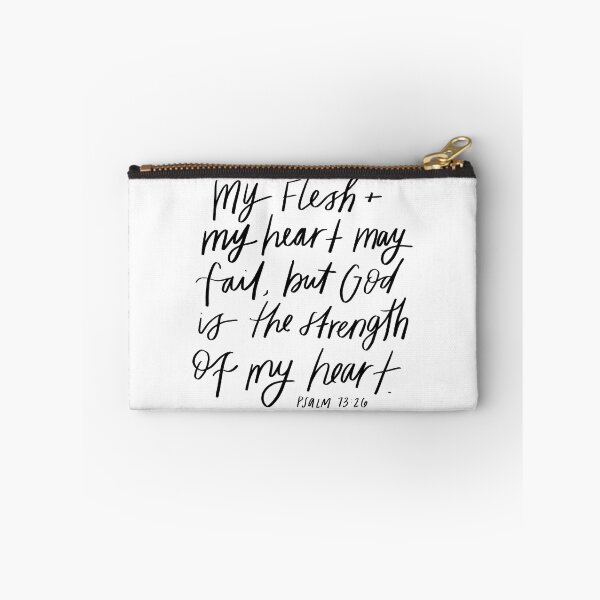 my Flesh +
my heart may
fail, but God
is the strength
OF my heart.
PSALM 73:26